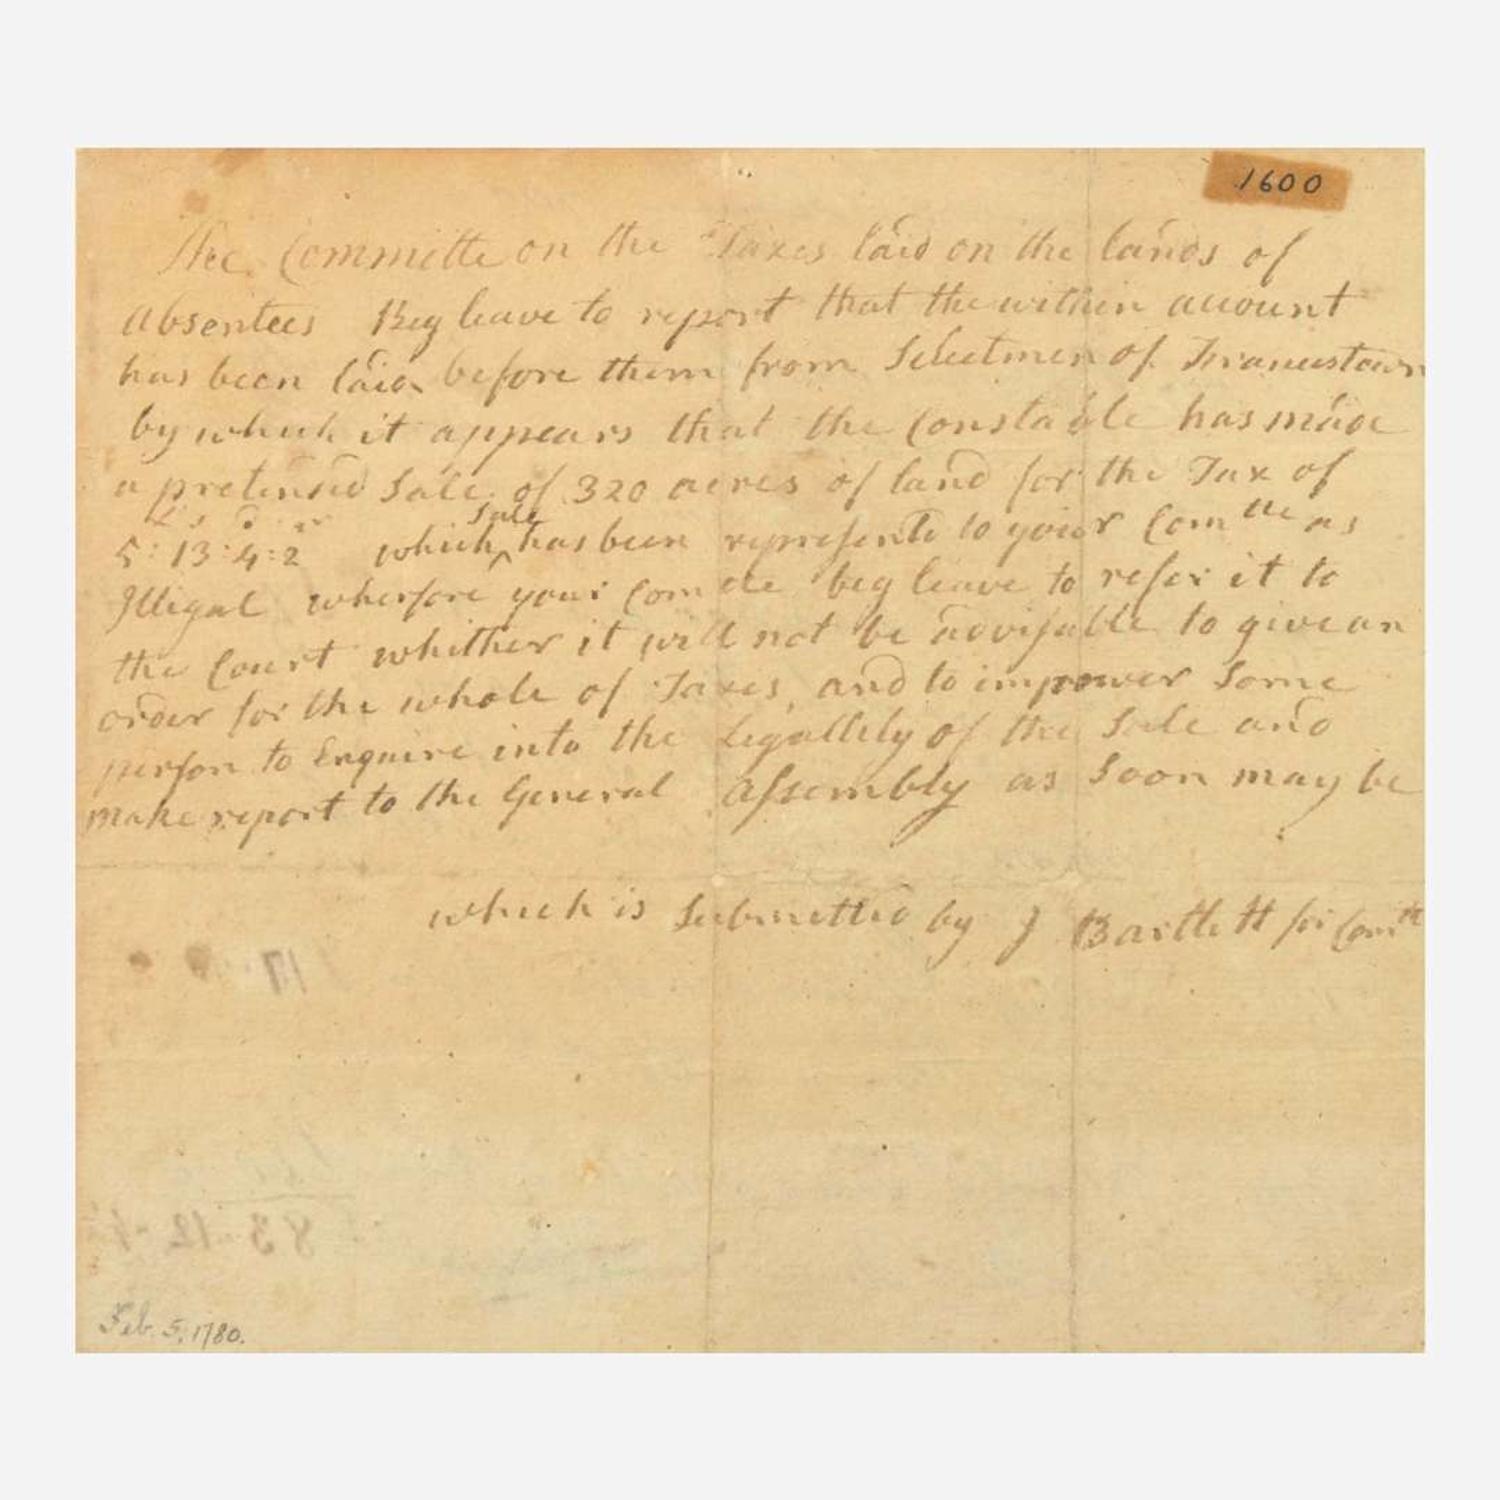 1600
The Committe on the Taxes laid on the lands of
absentees Beg leave to report that the within account
has been laid before them from Selectmen of Francestown
by which it appears that the Constable has made
a pretended Sale of 320 acres of land for the Tax of
£ s d qr
Sale
5:13:4:2 which ‸ has been represente to your Comtte as
Illegal wherfore your Comtte beg leave to refer it to
the Court whither it will not be advisable to give an
order for the whole of Taxes, and to impower Some
person to Enquire into the Legallity of the Sale and
make report to the General Assembly as Soon may be
which is Submitted by J Bartlett for Comtte
17
83-12-4
Feb. 5, 1780.